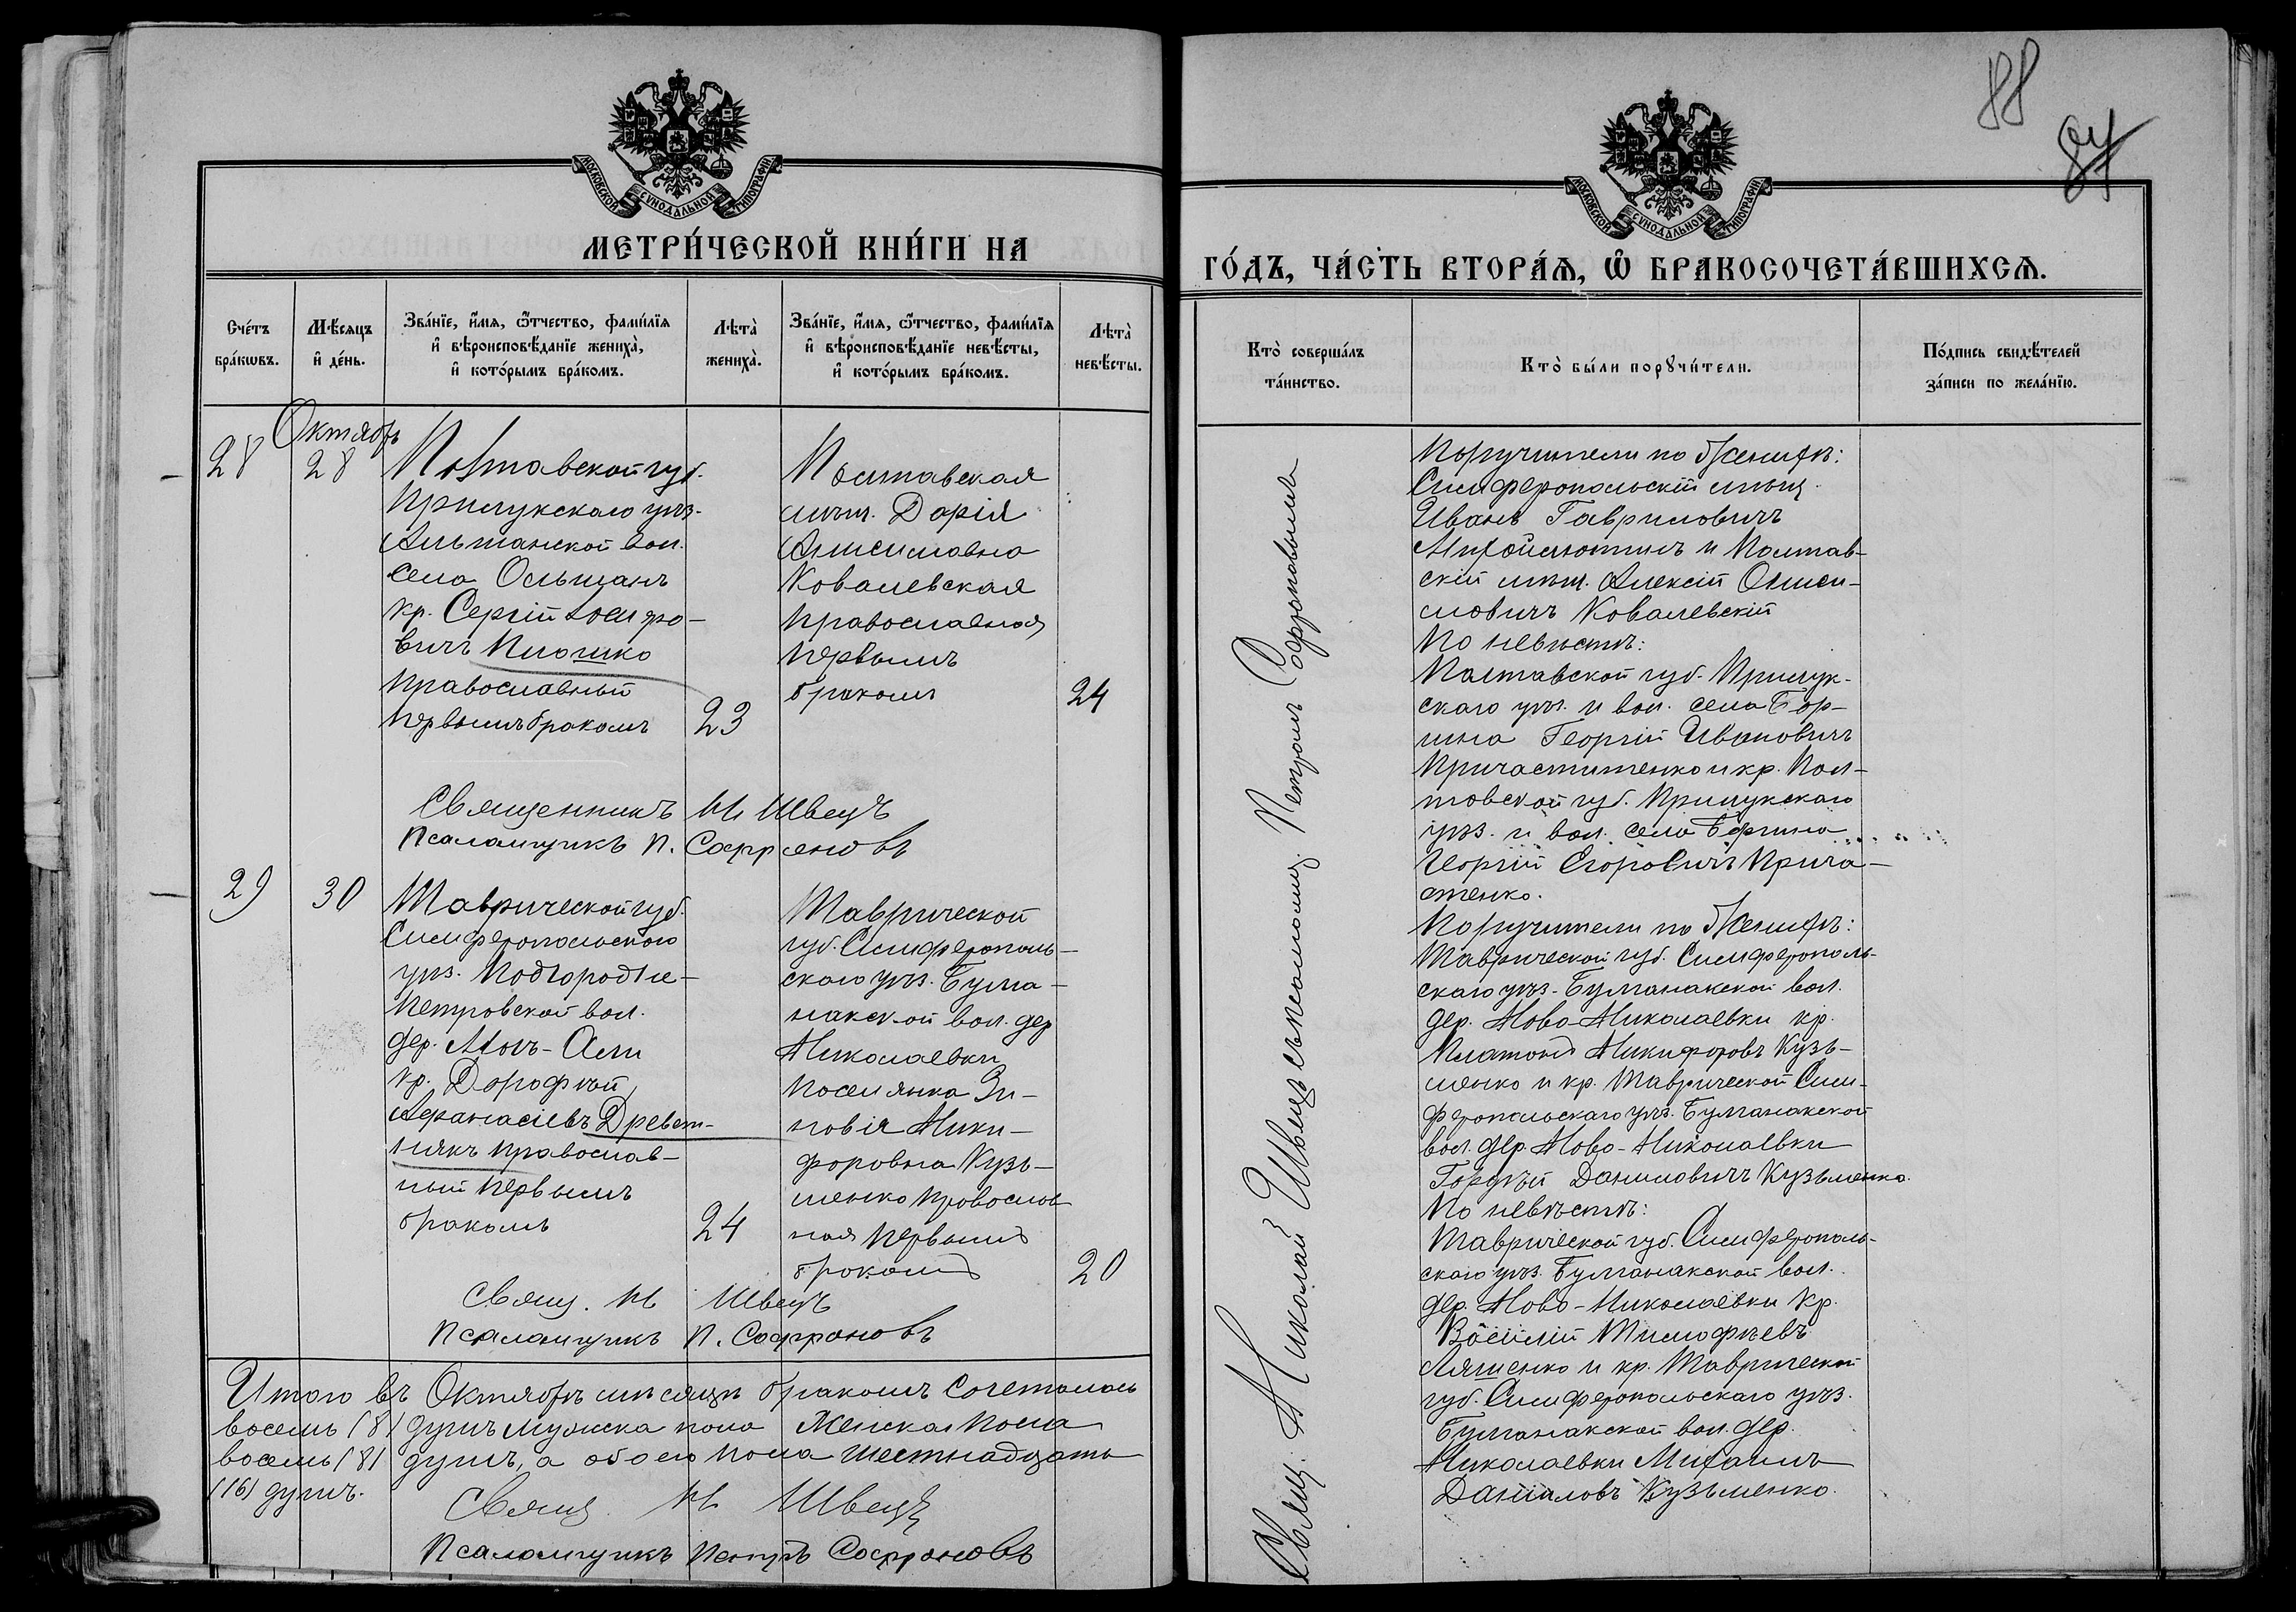 88
87
МОСКОВСКОЙ СѴНОДАЛЬНОЙ ТИПОГРАФІИ
МЕТРИ́ЧЕСКОЙ КНИ́ГИ НА
Сче́тъ бра́кωвъ.
Мѣ́сяцъ и҆ де́нь.
Зва́нїе, и҆́мя, ѻ҆́тчество, фами́лїя
и҆ вѣроисповѣ́данїе жениха̀,
и҆ кото́рымъ бра́комъ.
Лѣта̀ жениха̀.
Зва́нїе, и҆́мя, ѻ҆́тчество, фами́лїя
и҆ вѣроисповѣ́данїе невѣ́сты,
и҆ кото́рымъ бра́комъ.
Лѣта̀ невѣ́сты.
Октябрь
28
28
Полтавской губ.
Прилукскаго уѣз.
Ольшанской вол.
села Ольшанъ
кр. Сергій Іосифо-
вичъ Плюшко
православный
первымъ бракомъ
23
Полтавская
мѣщ. Дарія
Анисимовна
Ковалевская
православная
первымъ
бракомъ
24
Священникъ Н. Швецъ
Псаломщикъ П. Софроновъ
29
30
Таврической губ.
Симферопольскаго
уѣз. Подгородне-
Петровской вол.
дер.
кр. Дорофѣй
Афанасіевъ Древет-
някъ православ-
ный первымъ
бракомъ
24
Таврической
губ. Симферополь-
скаго уѣз. Булга-
накской вол. дер
Николаевки
поселянка Зи-
новія Ники-
форовна Кузь-
менко православ
ная первымъ
бракомъ
20
Свящ. Н Швецъ
Псаломщикъ П. Софроновъ
Итого въ Октябрѣ мѣсяцѣ бракомъ сочеталось
восемь (8) душъ мужска пола женска пола
восемь (8) душъ, а обоего пола шестнадцать
(16) душъ.
Свящ. Н Швецъ
Псаломщикъ Петръ Софроновъ
МОСКОВСКОЙ СѴНОДАЛЬНОЙ ТИПОГРАФІИ
ГО́ДЪ, ЧА́СТЬ ВТОРА́Я, Ѽ БРАКОСОЧЕТА́ВШИХСЯ.
Кто̀ соверша́лъ
та́инство.
Кто̀ бы́ли порꙋчи́тели.
По́дпись свидѣ́телей
за́писи по жела́нїю.
Свящ. Николай Швецъ съ псаломщ. Петромъ Софроновымъ
Поручители по женихѣ:
Симферопольскій мѣщ.
Иванъ Гавриловичъ
и Полтав-
скій мѣщ. Алексій Ониси-
мовичъ Ковалевскій
По невѣстѣ:
Полтавской губ. Прилук-
скаго уѣз. и вол. села
Георгій Ивановичъ
и кр. Пол-
тавской губ. Прилукскаго
уѣз. и вол. села
Георгій Егоровичъ Прича-
стенко.
Поручители по женихѣ:
Таврической губ. Симферополь-
скаго уѣз. Булганакской вол.
дер. Ново-Николаевки кр.
Платонъ Никифоровъ Кузь-
менко и кр. Таврической Сим-
феропольскаго уѣз. Булганакской
вол. дер. Ново-Николаевки
Гордѣй Даниловичъ Кузьменко.
По невѣстѣ:
Таврической губ. Симферополь-
скаго уѣз. Булганакской вол.
дер. Ново-Николаевки кр.
Василій Тимофѣевъ
Ляшенко и кр. Таврической
губ. Симферопольскаго уѣз.
Булганакской вол. дер.
Николаевки Михаилъ
Даниловъ Кузьменко.